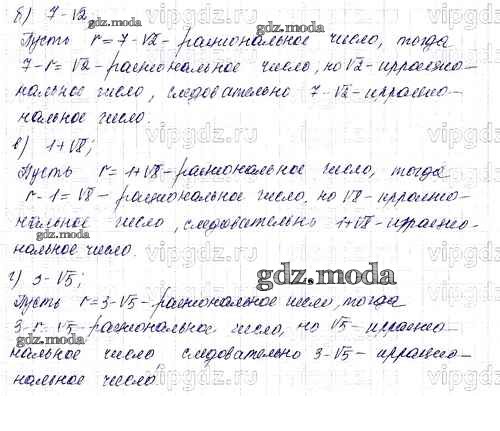 б) 7-√2
gdz.moda
Пусть r=7-√2-рациональное число, тогда
7-r=√2-рациональное число, но √2-иррацио-
нальное число, следовательно 7-√2-иррацио-
нальное число.
в) 1+√8;
gdz.moda
Пусть r=1+√8-рациональное число, тогда
r-1=√8-рациональное число, но √8-иррацио-
нальное число, следовательно 1+√8-иррацио-
нальное число.
gdz.moda
г) 3-√5;
Пусть r=3-√5-рациональное число, тогда
3-r=√5-рациональное число, но √5-иррацио-
нальное число следовательно 3-√5-иррацио-
нальное число.
gdz.moda
vipgdz.com
vipgdz.com
vipgdz.com
vipgdz.com